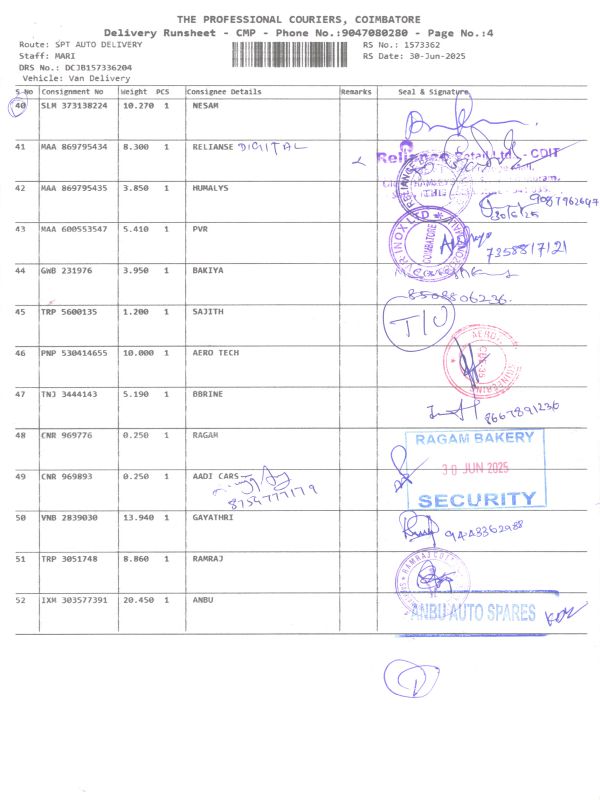 THE PROFESSIONAL COURIERS, COIMBATORE
Delivery Runsheet - CMP - Phone No.:9047080280 - Page No.:4
Route: SPT AUTO DELIVERY RS No.: 1573362
Staff: MARI RS Date: 30-Jun-2025
DRS No.: DCJB157336204
Vehicle: Van Delivery
S No Consignment No Weight PCS Consignee Details Remarks Seal & Signature
40 SLM 373138224 10.270 1 NESAM
41 MAA 869795434 8.300 1 RELIANSE DIGITAL
Reliance Retail Ltd. - CDIT
42 MAA 869795435 3.850 1 HUMALYS
30/6/25
43 MAA 600553547 5.410 1 PVR
PVR INOX LTD
COIMBATORE
7358817121
44 GWB 231976 3.950 1 BAKIYA
8508806236.
45 TRP 5600135 1.200 1 SAJITH
T/O
46 PNP 530414655 10.000 1 AERO TECH
47 TNJ 3444143 5.190 1 BBRINE
8667891236
48 CNR 969776 0.250 1 RAGAM
RAGAM BAKERY
30 JUN 2025
SECURITY
49 CNR 969893 0.250 1 AADI CARS
8754777179
50 VNB 2839030 13.940 1 GAYATHRI
9443362988
51 TRP 3051748 8.860 1 RAMRAJ
52 IXM 303577391 20.450 1 ANBU
ANBU AUTO SPARES